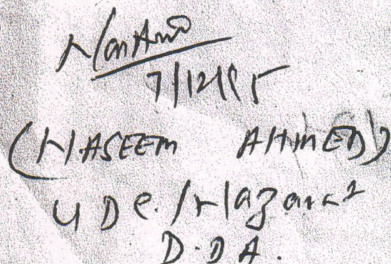 7/12/95
(NASEEM AHMED)
UDC/Nazarat
D.D.A.